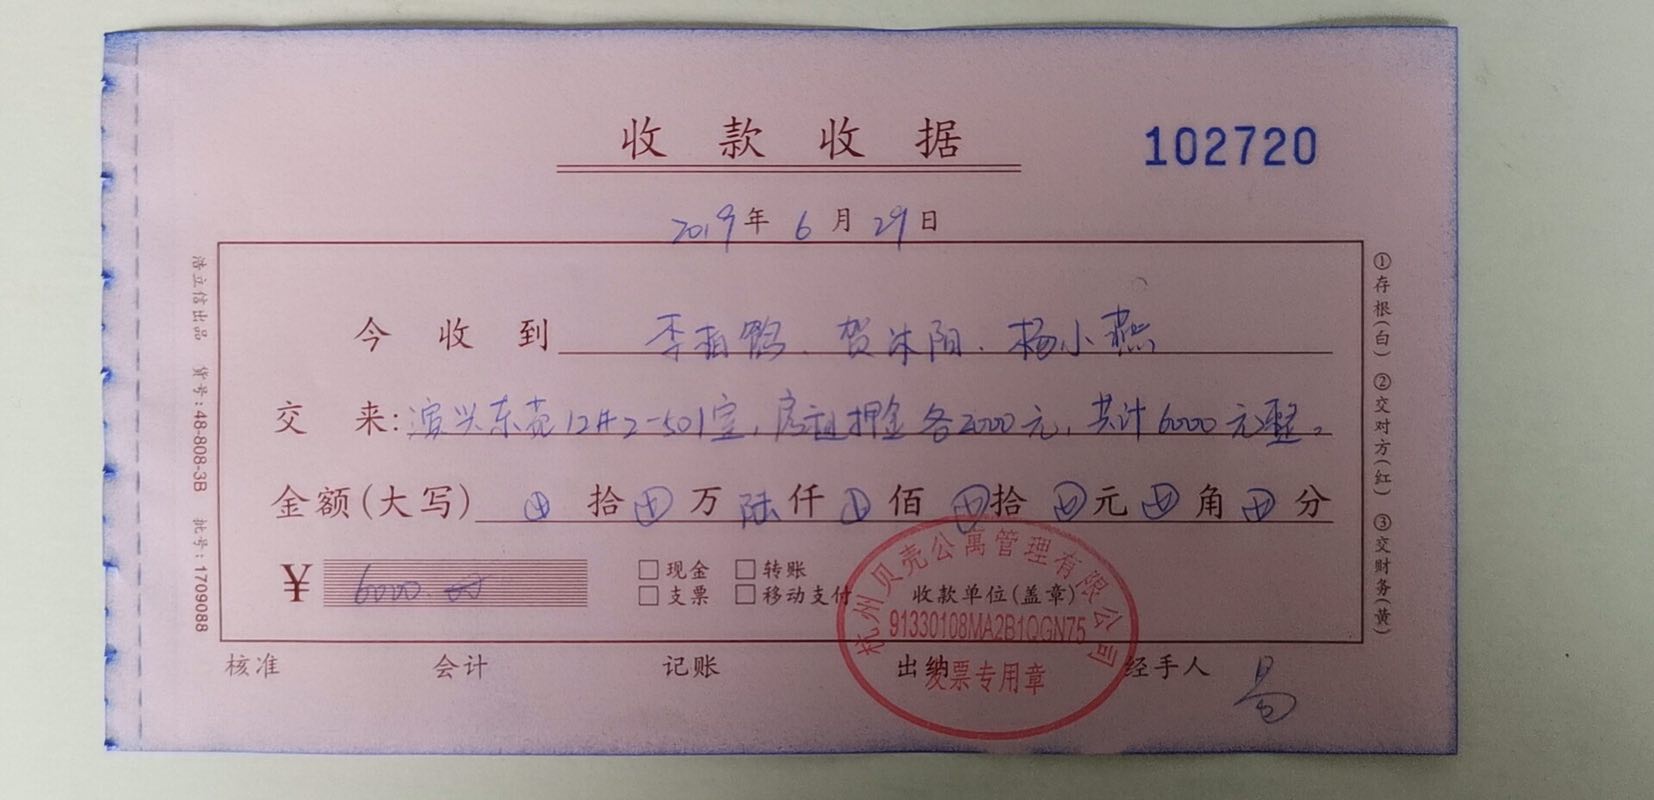 收款收据
102720
2019年6月29日
今收到 李柏鹤、贺沐阳、杨小燕
交来:滨兴东苑12#2-501室,房租押金各2000元,共计6000元整。
金额(大写) 拾 万陆仟 佰 拾 元 角 分
¥ 6000.00
□现金 □转账
□支票 □移动支付 收款单位(盖章)
核准 会计 记账 出纳 经手人
杭州贝壳公寓管理有限公司
91330108MA2B1QGN75
发票专用章
浩立信出品 货号:48-808-3B 批号:1709088
①存根(白) ②交对方(红) ③交财务(黄)